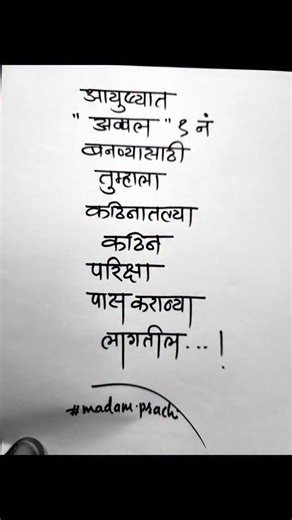 आयुष्यात
" अव्वल " १ नं
बनण्यासाठी
तुम्हाला
कठिनातल्या
कठिन
परिक्षा
पास कराव्या
लागतील...!
#madam.prachi